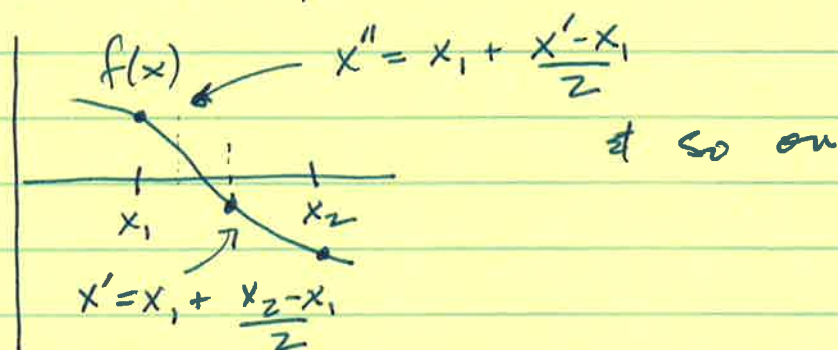 f(x) x'' = x₁ + (x' - x₁)/2
& so on
x₁ x₂
x' = x₁ + (x₂ - x₁)/2